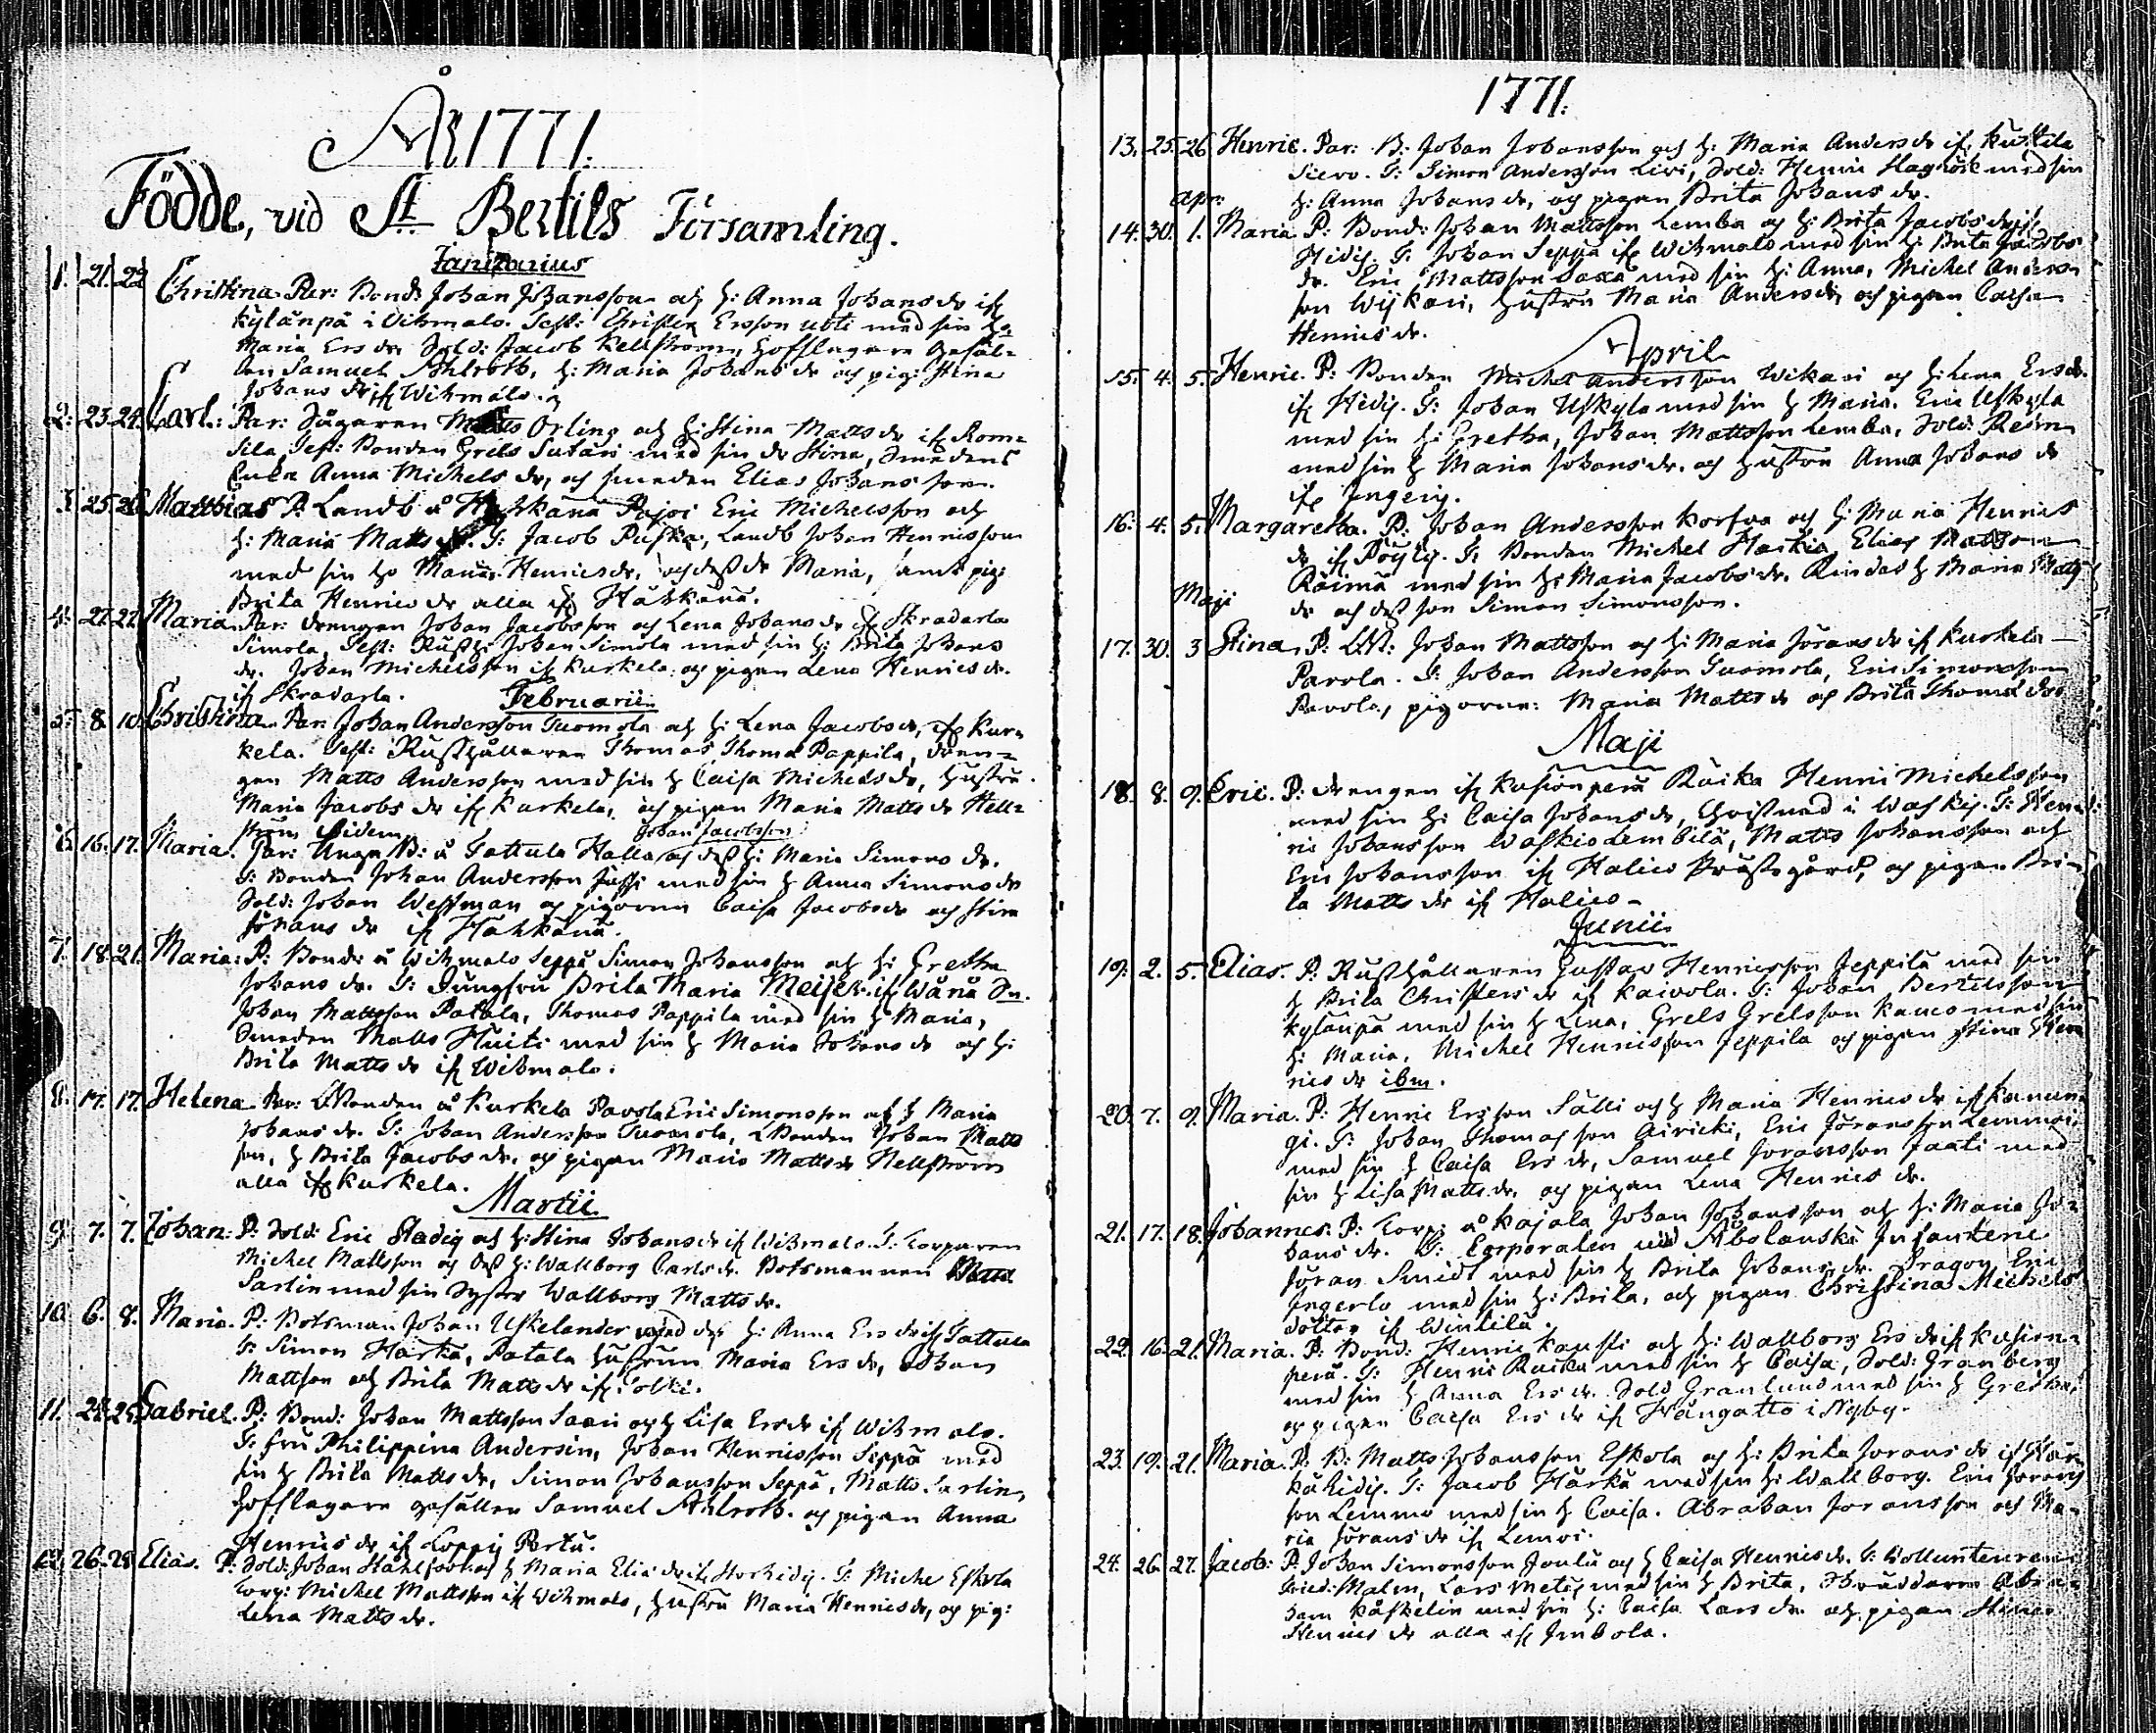 År 1771.
Födde, vid St Bertils Församling.
Januarius
1. 21. 22 Christina. Par: Bond: Johan Johansson och h: Anna Johans dr if
Kylänpä i Wihmalo. Test: Christer Ersson Uoti med sin h:
Maria Ers dr. Sold: Jacob Kellström, Hofslagare Gesäl-
len Samuel Ahlroth, h: Maria Johans dr och pig: Stina
Johans dr if Wihmalo.
2. 23. 24. Carl: Par: Sågaren Matts Orling och h: Stina Matts dr if Rom-
sila, Test: Bonden Grels Sutari med sin dr Stina, Smedens
Enka Anna Michels dr, och smeden Elias Johansson.
3. 25. 26 Matthias P: Landb å Eric Michelsson och
h: Maria Matts dr. T: Jacob Landb Johan Henricsson
med sin h: Maria Henrics dr, och dess dr Maria, samt pig:
Brita Henrics dr alla if Hähkänä.
4. 27. 27. Maria Par: drengen Johan Jacobsson och Lena Johans dr if Skradarla
Simola, Test: Rusth: Johan Simola med sin h: Brita Johans
dr. Johan Michelsson if Kurkela och pigan Lena Henrics dr.
if Skradarla. Februarii
5. 8. 10. Christina Par: Johan Andersson Tuomola och h: Lena Jacobs dr, if Kur-
kela. Test: Rusthållaren Thomas Thomas Pappila, dren-
gen Matts Andersson med sin h Caisa Michels dr, Hustru
Maria Jacobs dr if Kurkela, och pigan Maria Matts dr Hell-
ström ibidem
6. 16. 17. Maria. Par: Unga B: å Tattula Halla Johan Jacobsson och dess h: Maria Simons dr.
T: Bonden Johan Andersson Jussi med sin h Anna Simons dr
Sold: Johan Westman och pigorna Caisa Jacobs dr och Stina
Johans dr if Hähkänä.
7. 18. 21. Maria: P: Bond: å Wihmalo Seppä Simon Johansson och h: Gretha
Johans dr. T: Jungfru Brita Maria Meijer if Wånå Sn.
Johan Mattsson Patala, Thomas Pappila med sin h Maria,
Smeden Matts Huiti med sin h Maria Johans dr och h:
Brita Matts dr if Wihmalo.
8. 17. 17. Helena Par: Bonden å Kurkela Pavola Eric Simonsson och h Maria
Johans dr. T: Johan Andersson Tuomola, Bonden Johan Matts
son, h Brita Jacobs dr, och pigan Maria Matts dr Hellström
alla if Kurkela.
Martii
9. 7. 7. Johan: P: Sold: Eric Stadig och h: Stina Johans dr if Wihmalo. T: Torparen
Michel Mattsson och dess h: Wallborg Carls dr. Botsmannen Matts
Sarlin med sin Syster Wallborg Matts dr.
10. 6. 8. Maria. P: Botsman Johan Uskelander med dess h: Anna Ers dr if Tattula
T: Simon Härkä, Patala hustrun Maria Ers dr, Johan
Mattson och Brita Matts dr if Tolki.
11. 24. 25. Gabriel. P: Bond: Johan Mattsson Saari och h Lisa Ers dr if Wihmalo.
T: Fru Philippina Andersin, Johan Henricsson Seppä med
sin h Brita Matts dr, Simon Johansson Seppä, Matts Sarlin,
Hofslagare gesällen Samuel Ahlroth. och pigan Anna
Henrics dr if Loppij Pertu.
12. 26. 28. Elias. P: Sold: Johan och h Maria Elias dr if Horhidij. T: Michel Eskola
Torp: Michel Mattsson if Wihmalo, hustru Maria Henrics dr, och pig:
Lena Matts dr.
1771.
13. 25. 26 Henric. Par: B: Johan Johansson och h: Maria Anders dr if Kuttila
Siero. T: Simon Andersson Livi, Sold: Henric Hagrösk med sin
h: Anna Johans dr, och pigan Brita Johans dr.
apr:
14. 30. 1. Maria. P: Bond: Johan Mattsson Lemba och h: Brita Jacobs dr if
Hidij. T: Johan Seppä if Wihmalo med sin h: Brita Jacobs
dr. Eric Mattsson Saxa med sin h: Anna, Michel Anders-
son Wijkari, Hustru Maria Anders dr, och pigan Caisa
Henrics dr.
April
15. 4. 5. Henric. P: Bonden Michel Andersson Wikari och h: Lena Ers dr.
if Hidij. T: Johan Uskyla med sin h Maria. Eric Uskyla
med sin h: Gretha, Johan Mattsson Lemba, Sold:
med sin h Maria Johans dr. och hustru Anna Johans dr
if Ingeris.
16. 4. 5. Margaretha. P: Johan Andersson Korfva och h: Maria Henrics
dr if Pöytis. T: Bonden Michel Harkia, Elias Mattsson
Räimä med sin h: Maria Jacobs dr. Rindas h Maria Matts
Maji
dr och dess son Simon Simonsson.
17. 30. 3 Stina. P: Johan Mattsson och h: Maria Jörans dr if Kurkela
Pavola. T: Johan Andersson Tuomola, Eric Simonsson
Pavola, pigorne: Maria Matts dr och Brita Thomas dr
Maji
18. 8. 9. Eric. P: drengen if Kusionperä Raika Henric Michelsson
med sin h: Caisa Johans dr, Christnad i Waskij. T: Hen-
ric Johansson Waskio Lembilä, Matts Johansson och
Eric Johansson if Halico Prustegård, och pigan Bri-
ta Matts dr if Halico
Junii
19. 2. 5. Elias. P: Rusthållaren Gustav Henricsson Jeppilä med sin
h Brita Christers dr if Kaivola. T: Johan Bertilsson
Kylänpä med sin h Lena, Grels Grelsson Kauco med sin
h: Maria, Michel Henricsson Jeppila och pigan Stina Hen
rics dr ibm.
20. 7. 9. Maria. P: Henric Ersson Sälli och h Maria Henrics dr if Kanun-
gi. T: Johan Thomasson Airicki, Eric Jöransson Lemmoi,
med sin h Caisa Ers dr, Samuel Joransson Jaati med
sin h Lisa Matts dr, och pigan Lena Henrics dr.
21. 17. 18. Johannes. P: Torp: å Kajala Johan Johansson och h: Maria Jo-
hans dr. T: Corporalen vid Åbolänska Infanterie
Jöran Smidt med sin h Brita Johans dr. Dragon Eric
Ingerlo med sin h: Brita, och pigan Christina Michels
dotter if Wintilä.
22. 16. 21. Maria. P: Bond: Henric Kaussi och h: Wallborg Ers dr if Kusion-
perä. T: Henric Raika med sin h Caisa, Sold: Granberg
med sin h Anna Ers dr. Sold Granlund med sin h Gretha,
och pigan Caisa Ers dr if Wångatto i Nyby.
23. 19. 21. Maria. P: B: Matts Johansson Eskola och h: Brita Jorans dr if Har-
kähidij. T: Jacob Härkä med sin h: Wallborg. Eric Jorans
son Lemmo med sin h Caisa. Abraham Joransson och Ma-
ria Jörans dr if Lemoi.
24. 26. 27. Jacob: P: Johan Simonsson Joulu och h Caisa Henrics dr. T: Vollunteuren
Fried: Malm, Lars Metz med sin h Brita, Skräddaren Abra-
ham Kåskelin med sin h: Caisa Lars dr. och pigan Stina
Henrics dr alla if Imbola.